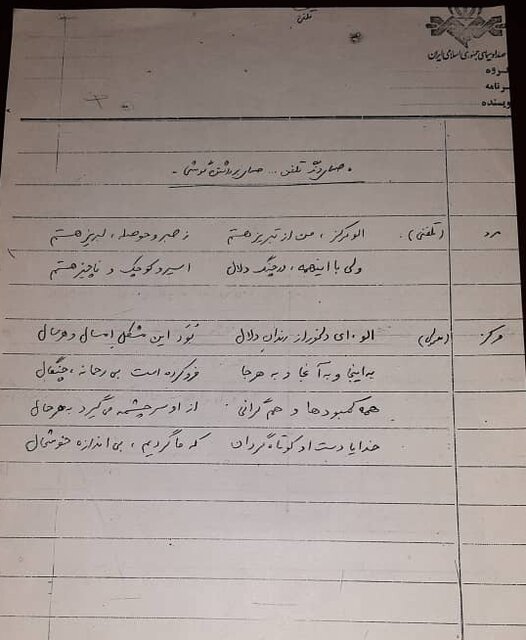 تلفن
صدا و سیمای جمهوری اسلامی ایران
گروه
برنامه
نویسنده
« صدای زنگ تلفن ... صدای برداشتن گوشی »
مرد (تلفنی): الو مرکز، من از تبریز هستم ز صبر و حوصله، لبریز هستم
ولی با اینهمه، در چنگ دلال اسیر و کوچک و ناچیز هستم
مرکز (معمولی) الو. ای دلخور از رندان دلال نَوَد این مشکل امسال و هر سال
به اینجا و به آنجا و به هر جا فرو کرده است بی رحمانه، چنگال
همه کمبودها و هم گرانی از او سرچشمه می گیرد به هر حال
خدایا دست او کوتاه گردان که ما گردیم، بی اندازه خوشحال